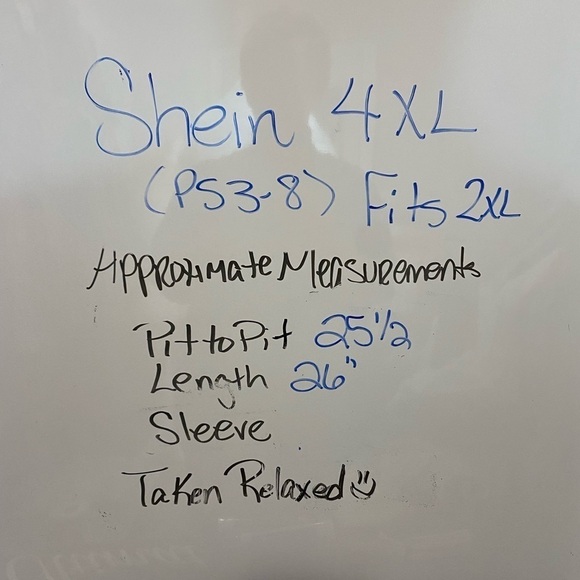 Shein 4XL
(PS3-8) Fits 2XL
Approximate Measurements
Pit to Pit 25 1/2
Length 26"
Sleeve
Taken Relaxed